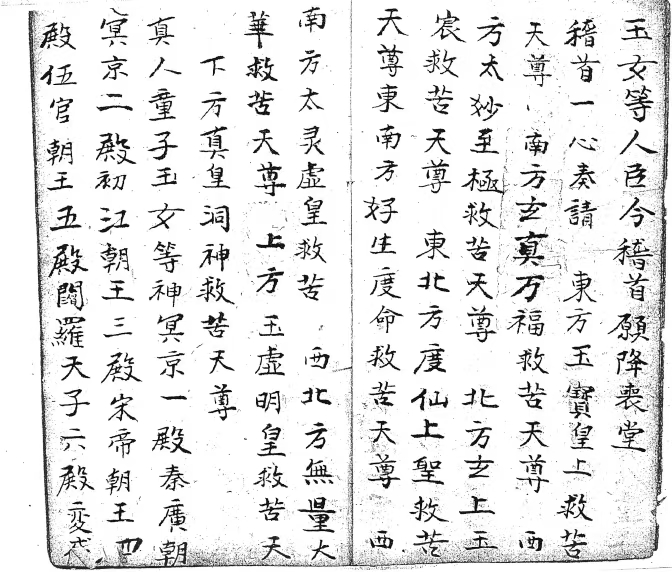 玉女等人臣今稽首願降喪堂
稽首一心奏請　東方玉寶皇上救苦
天尊　南方玄真万福救苦天尊　西
方太妙至極救苦天尊　北方玄上玉
宸救苦天尊　東北方度仙上聖救苦
天尊東南方好生度命救苦天尊　西
南方太灵虛皇救苦　西北方無量太
華救苦天尊　上方玉虛明皇救苦天
下方真皇洞神救苦天尊
真人童子玉女等神冥京一殿秦廣朝
冥京二殿初江朝王三殿宋帝朝王四
殿伍官朝王五殿閻羅天子六殿变成